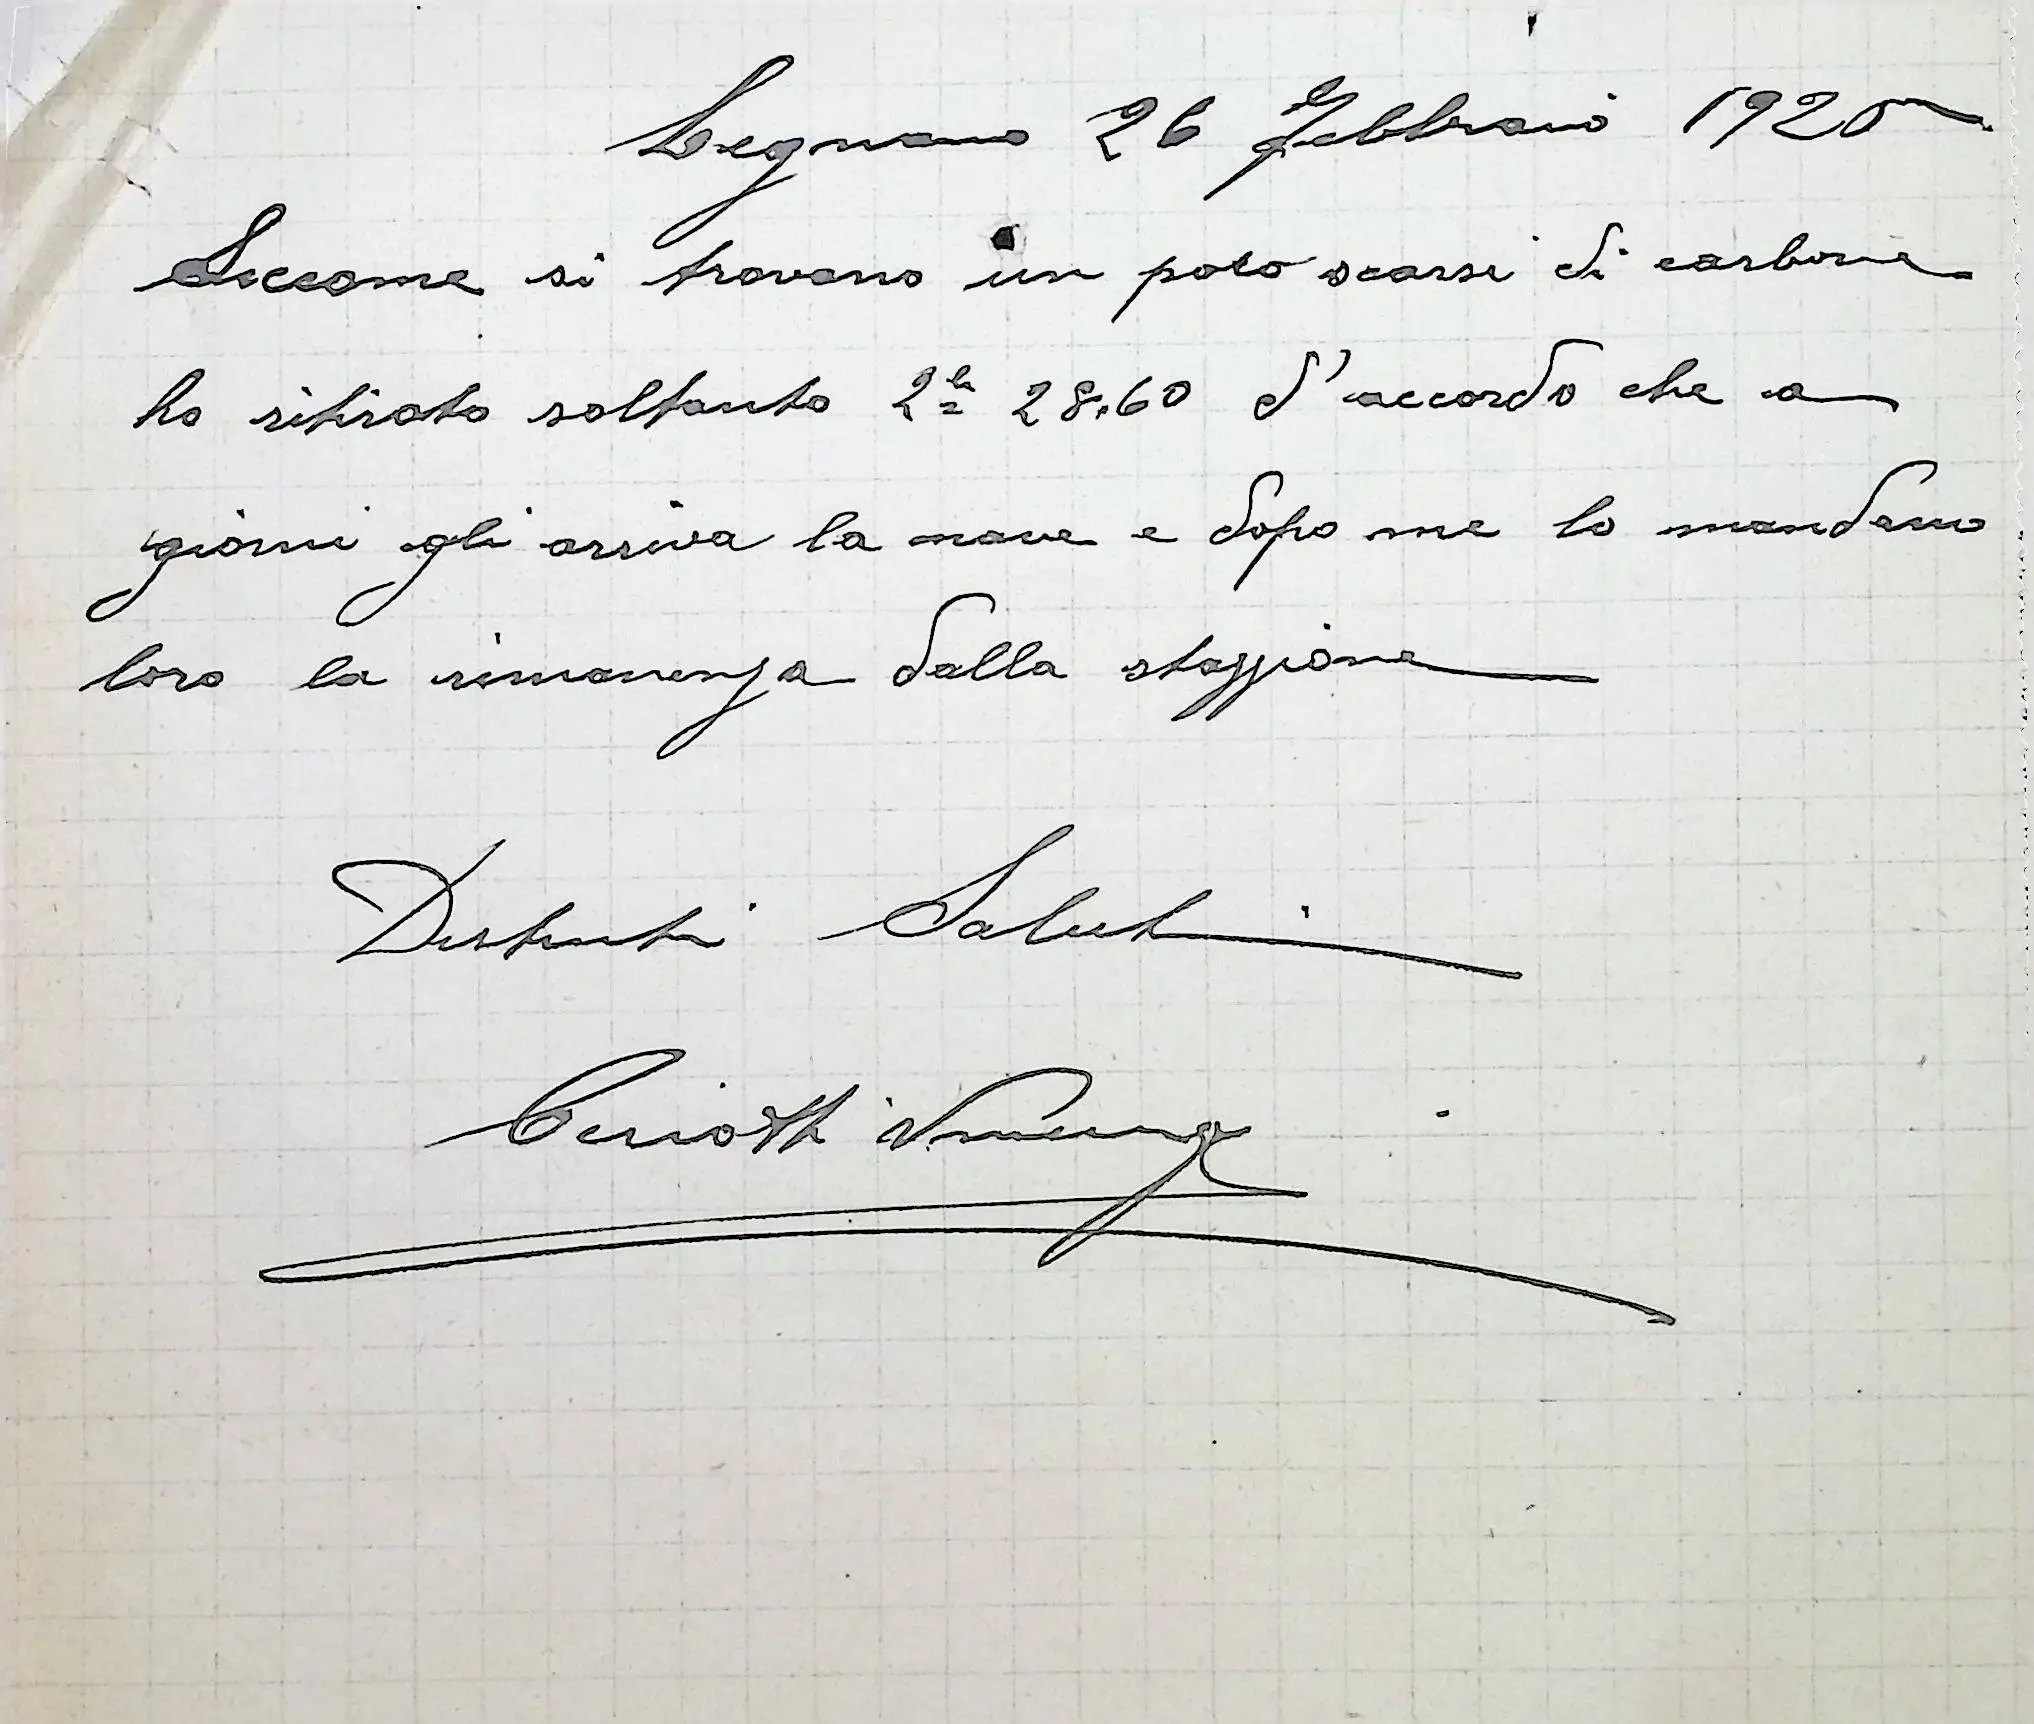 Legnano 26 Febbraio 1925
Siccome si trovano un poco scarsi di carbone
ho ritirato soltanto 2li 28.60 d'accordo che a
giorni gli arriva la nave e dopo me lo mandano
loro la rimanenza dalla stazzione
Distinti Saluti
Ceriotti Vincenzo